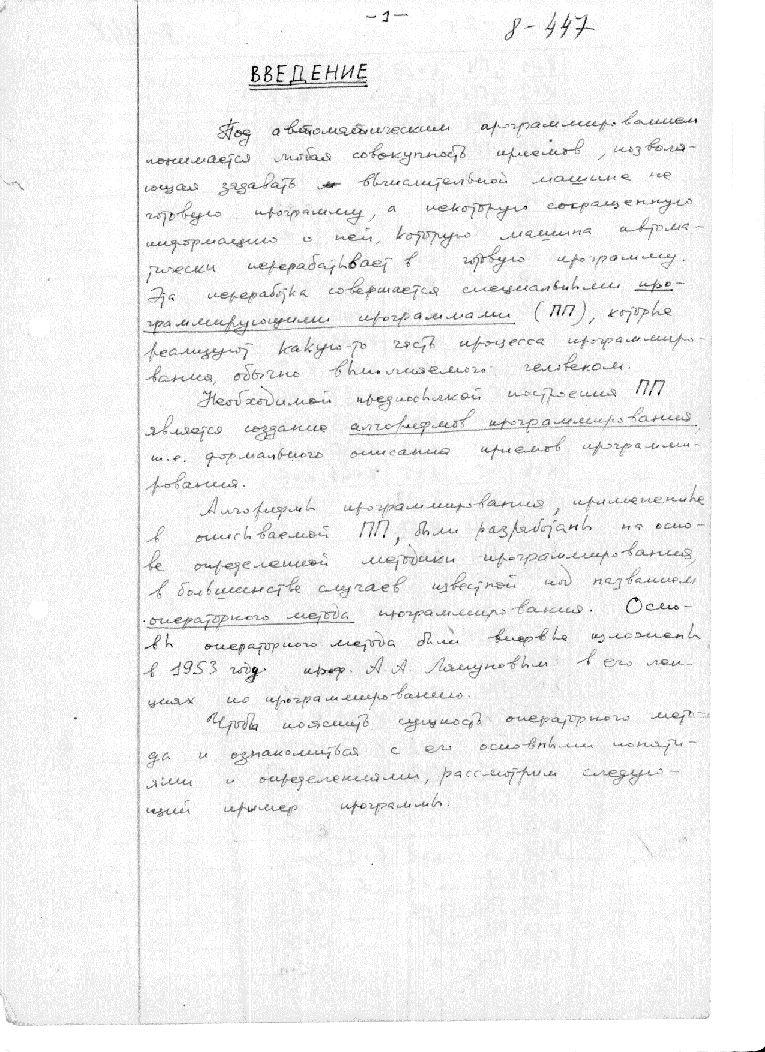 – 1 –
8-447
ВВЕДЕНИЕ
Под автоматическим программированием
понимается любая совокупность приемов, позволя-
ющая задавать вычислительной машине не
готовую программу, а некоторую сокращенную
информацию о ней, которую машина автома-
тически перерабатывает в готовую программу.
Эта переработка совершается специальными про-
граммирующими программами (ПП), которые
реализуют какую-то часть процесса программиро-
вания, обычно выполняемого человеком.
Необходимой предпосылкой построения ПП
является создание алгорифмов программирования
т.е. формального описания приемов программи-
рования.
Алгорифмы программирования, примененные
в описываемой ПП, были разработаны на осно-
ве определенной методики программирования,
в большинстве случаев известной под названием
операторного метода программирования. Осно-
вы операторного метода были впервые изложены
в 1953 году проф. А.А. Ляпуновым в его лек-
циях по программированию.
Чтобы пояснить сущность операторного мето-
да и ознакомиться с его основными поняти-
ями и определениями, рассмотрим следую-
щий пример программы.